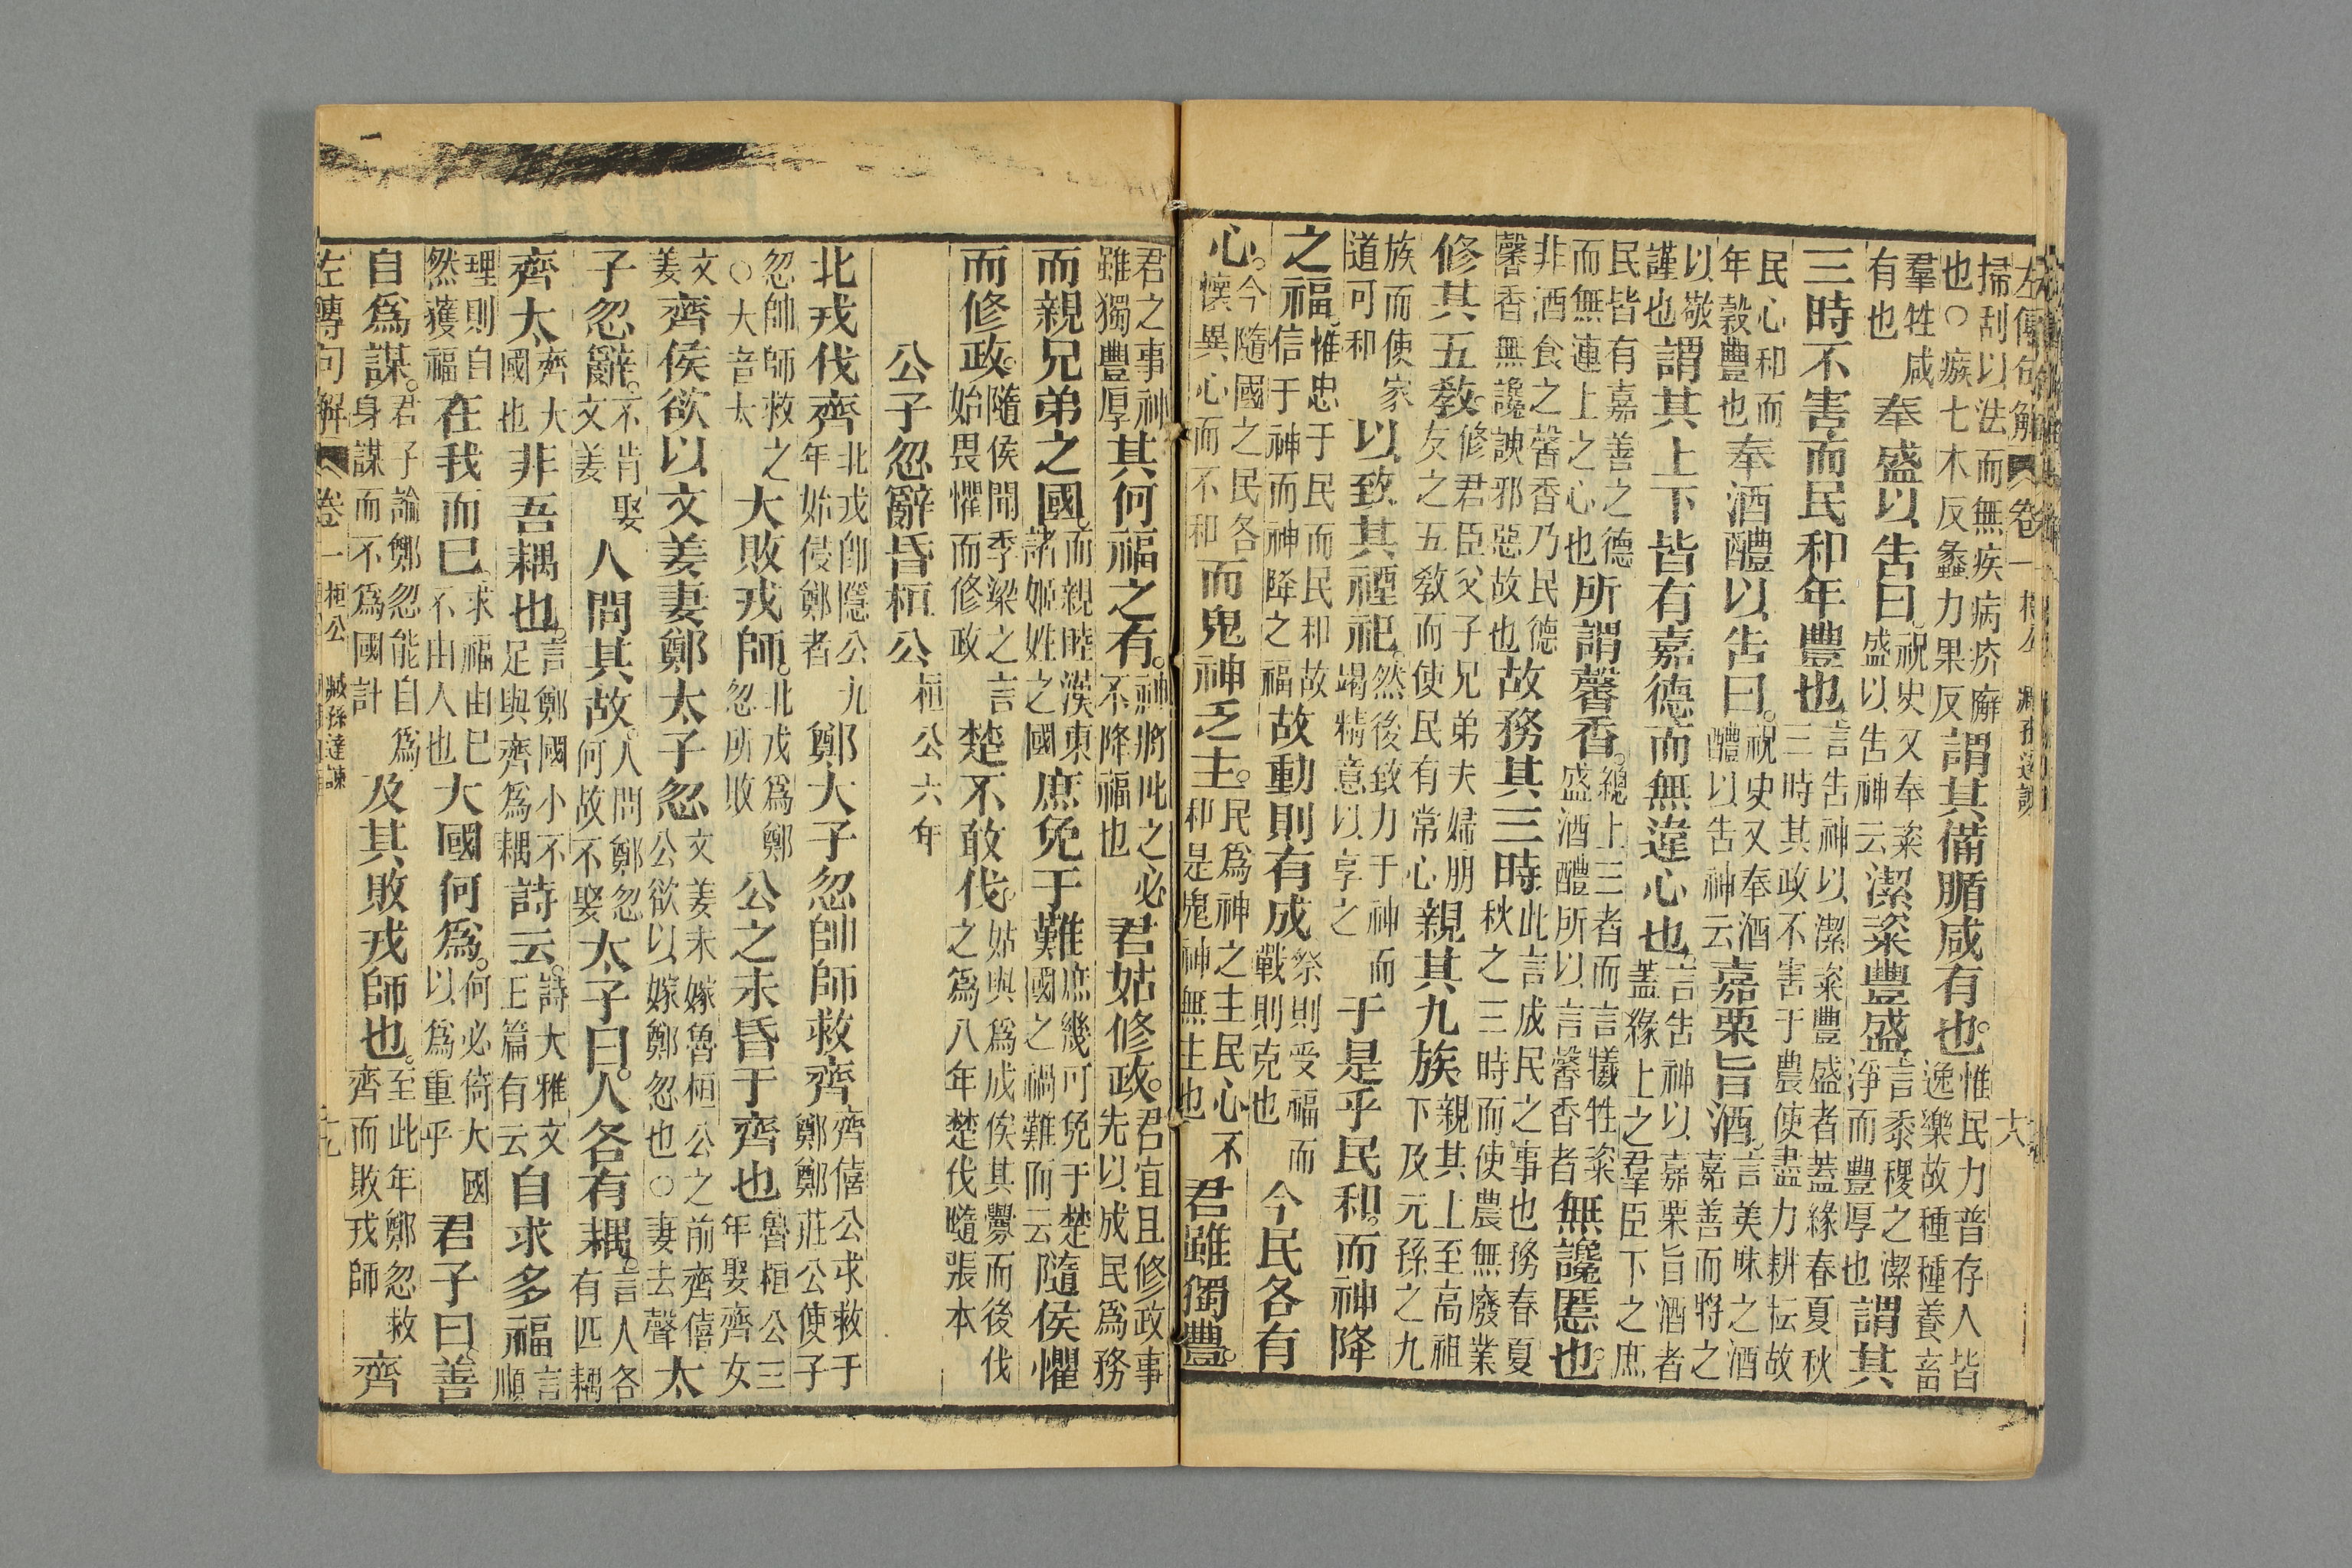 左傳句解 卷一 桓公 臧孫達諫 十八
掃刮以法而無疾病疥癬也○瘯七木反蠡力果反謂其備腯咸有也。惟民力普存人皆逸樂故種種養畜
羣牲咸有也奉盛以告曰。祝史又奉粢盛以告神云潔粢豐盛。言黍稷之潔淨而豐厚也謂其
三時不害而民和年豐也。言告神以潔粢豐盛者蓋緣春夏秋三時其政不害于農使盡力耕耘故
民心和而年穀豐也奉酒醴以告曰。祝史又奉酒醴以告神云嘉栗旨酒。言美味之酒嘉善而將之
以敬謹也謂其上下皆有嘉德而無違心也。言告神以嘉栗旨酒者蓋緣上之羣臣下之庶
民皆有嘉善之德而無連上之心也所謂馨香。總上三者而言犧牲粢盛酒醴所以言馨香者無讒慝也。
非酒食之馨香乃民德馨香無讒諛邪惡故也故務其三時。此言成民之事也務春夏秋之三時而使農無廢業
修其五敎。修君臣父子兄弟夫婦朋友之五敎而使民有常心親其九族。親其上至高祖下及元孫之九
族而使家道可和以致其禋祀。然後致力于神而竭精意以享之于是乎民和。而神降
之福。惟忠于民而民和故信于神而神降之福故動則有成祭則受福而戰則克也今民各有
心。今隨國之民各懷異心而不和而鬼神乏主。民爲神之主民心不和是鬼神無主也君雖獨豐。
君之事神雖獨豐厚其何福之有。神將此之必不降福也君姑修政。君宜且修政事先以成民爲務
而親兄弟之國。而親睦漢東諸姬姓之國庶免于難庶幾可免于楚國之禍難而云隨侯懼
而修政。隨侯聞季梁之言始畏懼而修政楚不敢伐。姑與爲成俟其釁而後伐之爲八年楚伐隨張本
公子忽辭昏桓公桓公六年
北戎伐齊北戎卽隱公九年始侵鄭者鄭大子忽帥師救齊齊僖公求救于鄭鄭莊公使子
忽帥師救之○大音太大敗戎師。北戎爲鄭忽所敗公之未昏于齊也魯桓公三年娶齊女
文姜齊侯欲以文姜妻鄭太子忽文姜未嫁魯桓公之前齊僖公欲以嫁鄭忽也○妻去聲太
子忽辭。不肯娶文姜人問其故。人問鄭忽何故不娶太子曰。人各有耦。言人各有匹耦
齊大齊大國也非吾耦也。言鄭國小不足與齊爲耦詩云。詩大雅文王篇有云自求多福言順
理則自然獲福在我而已。求福由已不由人也大國何爲。何必倚大國以爲重乎君子曰。善
自爲謀。君子論鄭忽能自爲身謀而不爲國計及其敗戎師也。至此年鄭忽救齊而敗戎師齊
左傳句解 卷一 桓公 臧孫達諫 十九